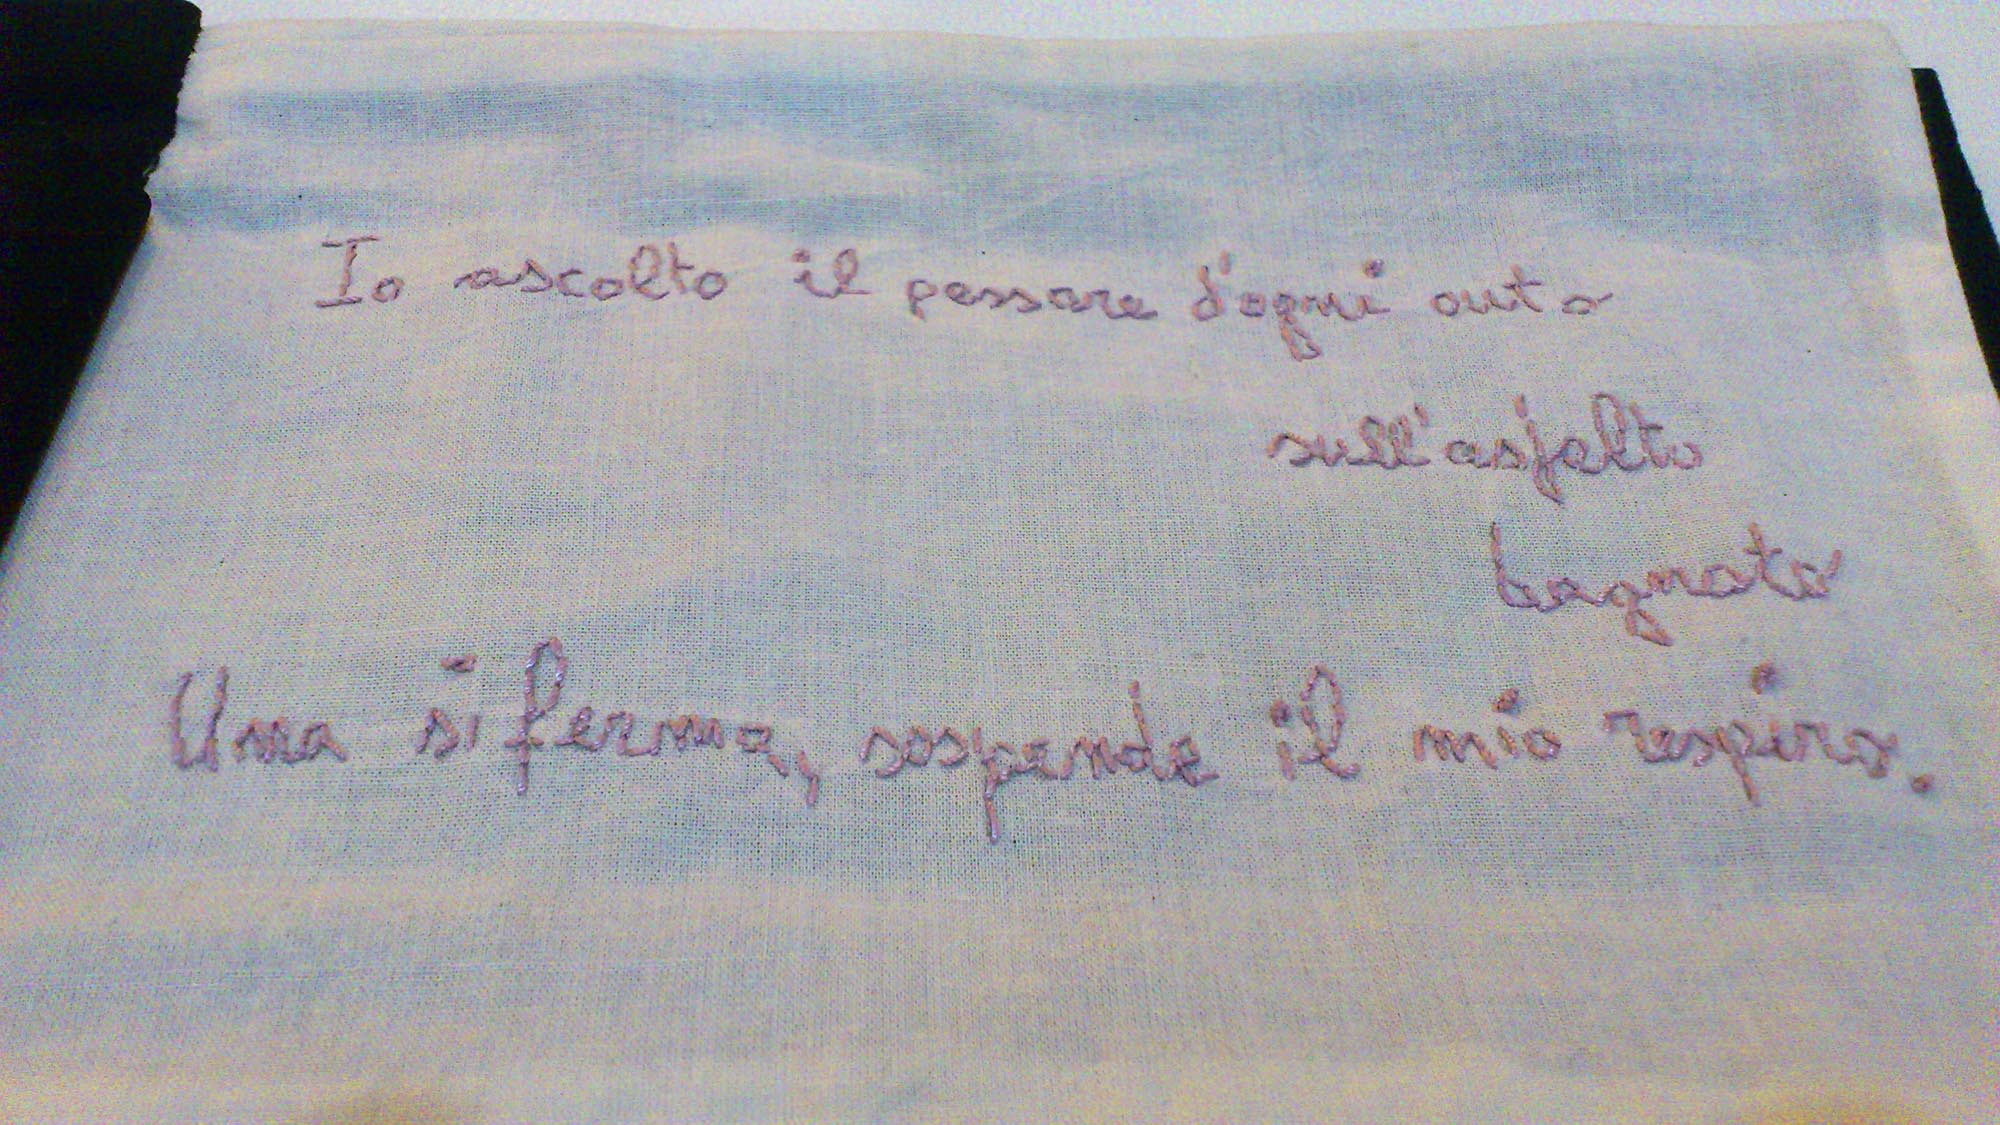 Io ascolto il passare d'ogni auto
sull'asfalto
bagnato
Una si ferma, sospende il mio respiro.